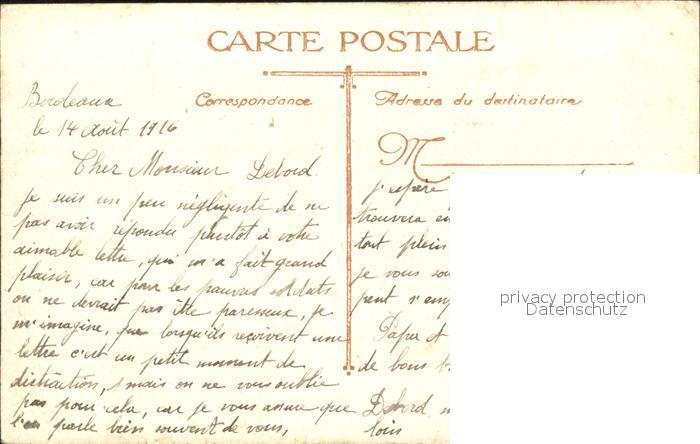 CARTE POSTALE
Correspondance
Adresse du destinataire
Bordeaux
le 14 août 1916
Cher Monsieur Debord
je suis un peu négligente de ne
pas avoir répondu plustot à votre
aimable lettre, qui m'a fait grand
plaisir, car pour les pauvres soldats
on ne devrait pas être paresseux, je
m'imagine, que lorsqu'ils reçoivent une
lettre c'est un petit moment de
distraction, mais on ne vous oublie
pas pour cela, car je vous assure que
l'on parle bien souvent de vous,
M
j'espère
trouvera en
tout plein
je vous sou
peut s'em
Papa et
de bons
Debord
lois
privacy protection
Datenschutz